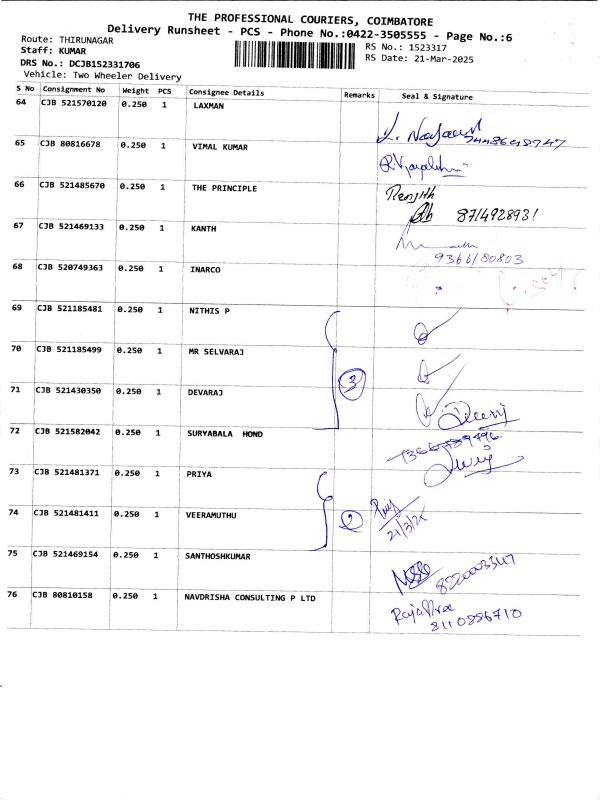 THE PROFESSIONAL COURIERS, COIMBATORE
Delivery Runsheet - PCS - Phone No.:0422-3505555 - Page No.:6
Route: THIRUNAGAR
RS No.: 1523317
Staff: KUMAR
RS Date: 21-Mar-2025
DRS No.: DCJB152331706
Vehicle: Two Wheeler Delivery
S No Consignment No Weight PCS Consignee Details Remarks Seal & Signature
64 CJB 521570120 0.250 1 LAXMAN
65 CJB 80816678 0.250 1 VIMAL KUMAR
66 CJB 521485670 0.250 1 THE PRINCIPLE Renjith
8714928931
67 CJB 521469133 0.250 1 KANTH
9366180803
68 CJB 520749363 0.250 1 INARCO
69 CJB 521185481 0.250 1 NITHIS P
70 CJB 521185499 0.250 1 MR SELVARAJ
3
71 CJB 521430350 0.250 1 DEVARAJ
72 CJB 521582042 0.250 1 SURYABALA HOND
73 CJB 521481371 0.250 1 PRIYA
74 CJB 521481411 0.250 1 VEERAMUTHU 2
75 CJB 521469154 0.250 1 SANTHOSHKUMAR
76 CJB 80810158 0.250 1 NAVDRISHA CONSULTING P LTD
8110886710